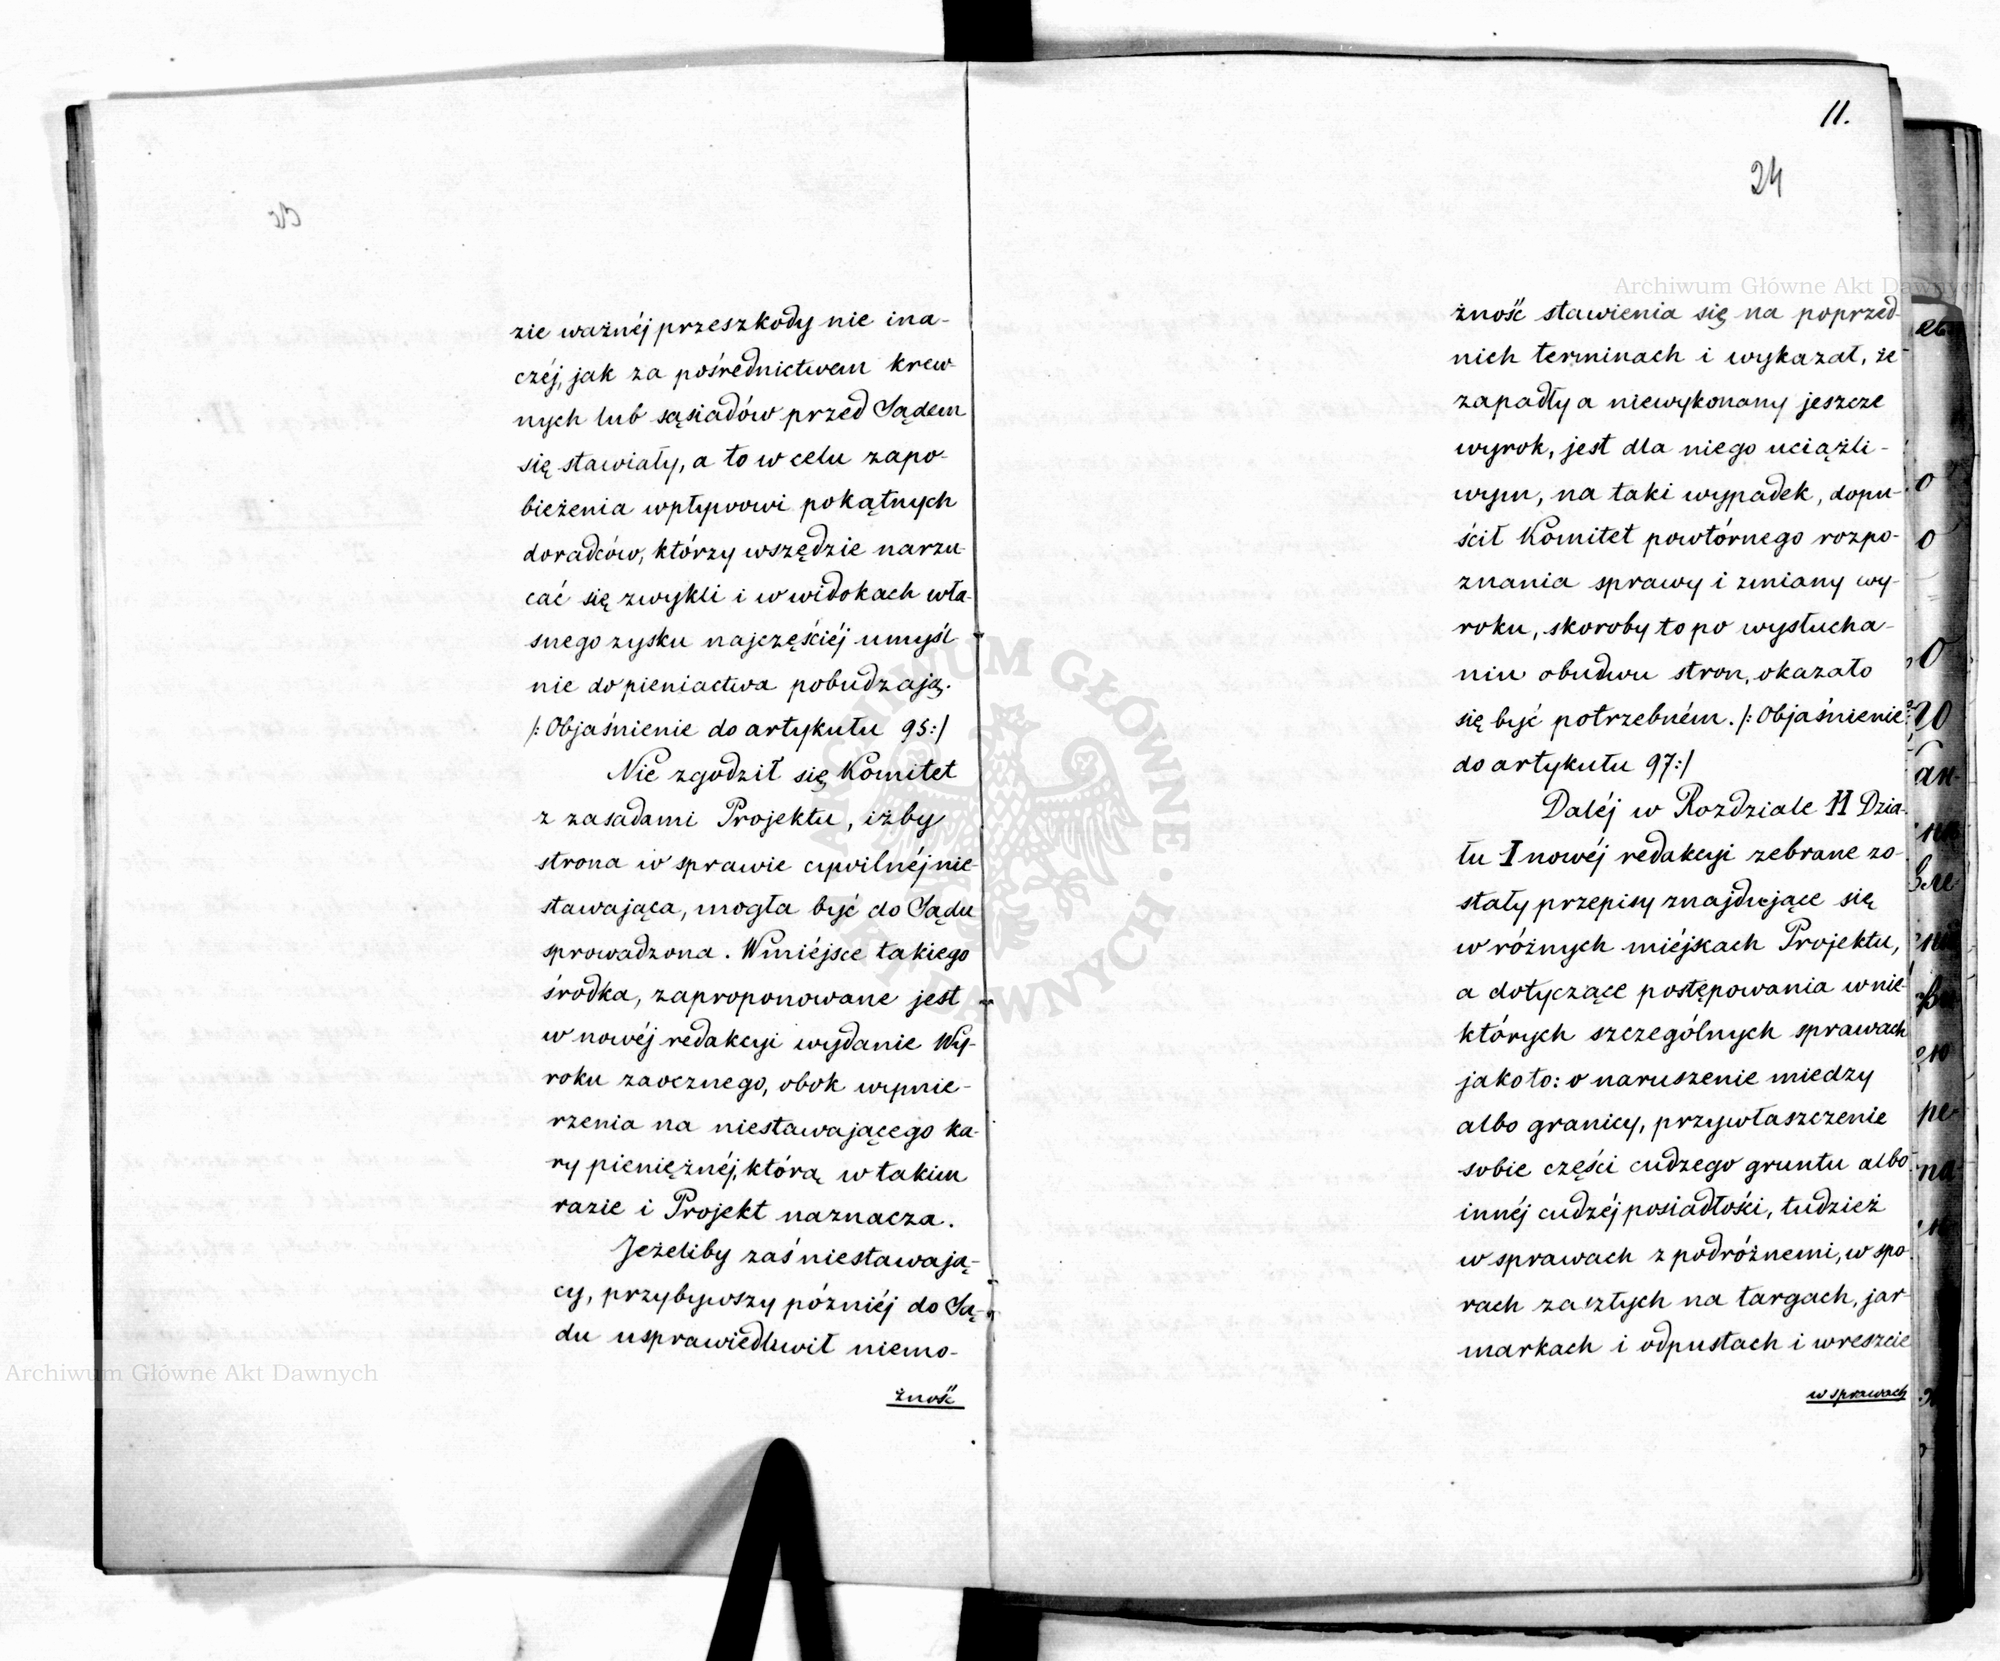 zie ważnéj przeszkody nie ina-
czéj, jak za pośrednictwem krew-
nych lub sąsiadów przed Sądem
się stawiały, a to w celu zapo-
bieżenia wpływowi pokątnych
doradców, którzy wszędzie narzu-
cać się zwykli i w widokach wła-
snego zysku najczęściéj umyśl-
nie do pieniactwa pobudzają.
/: Objaśnienie do artykułu 95:/
Nie zgodził się Komitet
z zasadami Projektu, iżby
strona w sprawie cywilnéj nie-
stawająca, mogła być do Sądu
sprowadzona. W miéjsce takiego
środka, zaproponowane jest
w nowéj redakcyi wydanie Wy-
roku zaocznego, obok wymie-
rzenia na niestawającego ka-
ry pieniężnéj, którą w takim
razie i Projekt naznacza.
Jeżeliby zaś niestawają-
cy, przybywszy późniéj do Są-
du usprawiedliwił niemo-
żność
11.
24
żność stawienia się na poprzed-
nich terminach i wykazał, że
zapadły a niewykonany jeszcze
wyrok, jest dla niego uciążli-
wym, na taki wypadek, dopu-
ścił Komitet powtórnego rozpo-
znania sprawy i zmiany wy-
roku, skoroby to po wysłucha-
niu obudwu stron, okazało
się być potrzebném. /: Objaśnienie
do artykułu 97:/
Daléj w Rozdziale II Dzia-
łu I nowéj redakcyi zebrane zo-
stały przepisy znajdujące się
w różnych miéjscach Projektu,
a dotyczące postępowania w nie-
których szczególnych sprawach
jako to: o naruszenie miedzy
albo granicy, przywłaszczenie
sobie części cudzego gruntu albo
innéj cudzéj posiadłości, tudzież
w sprawach z podróżnemi, w spo-
rach zaszłych na targach, jar-
markach i odpustach i wreszcie
w sprawach
Archiwum Główne Akt Dawnych
Archiwum Główne Akt Dawnych
ARCHIWUM GŁÓWNE AKT DAWNYCH